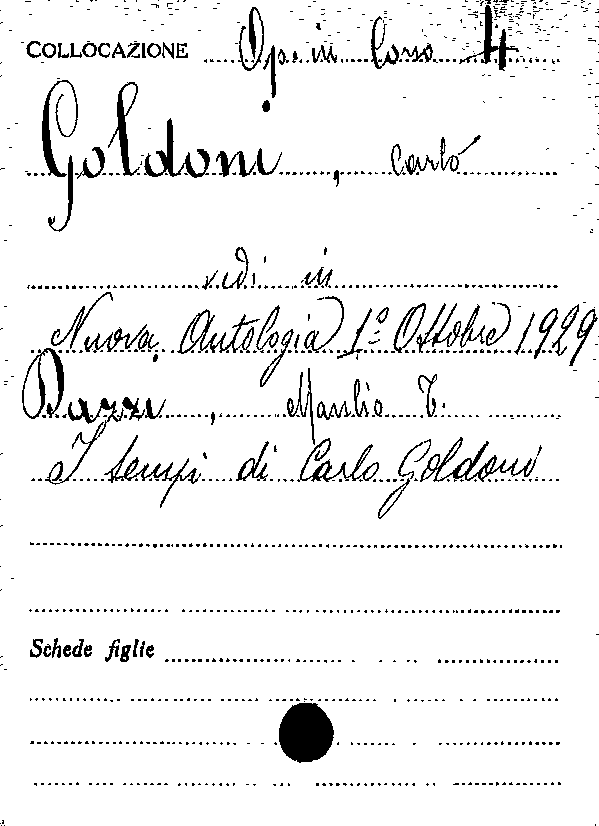 COLLOCAZIONE Op. in Corso 4
Goldoni, Carlo
vedi in
Nuova Antologia 1° Ottobre 1929
Dazzi, Manlio T.
I tempi di Carlo Goldoni
Schede figlie